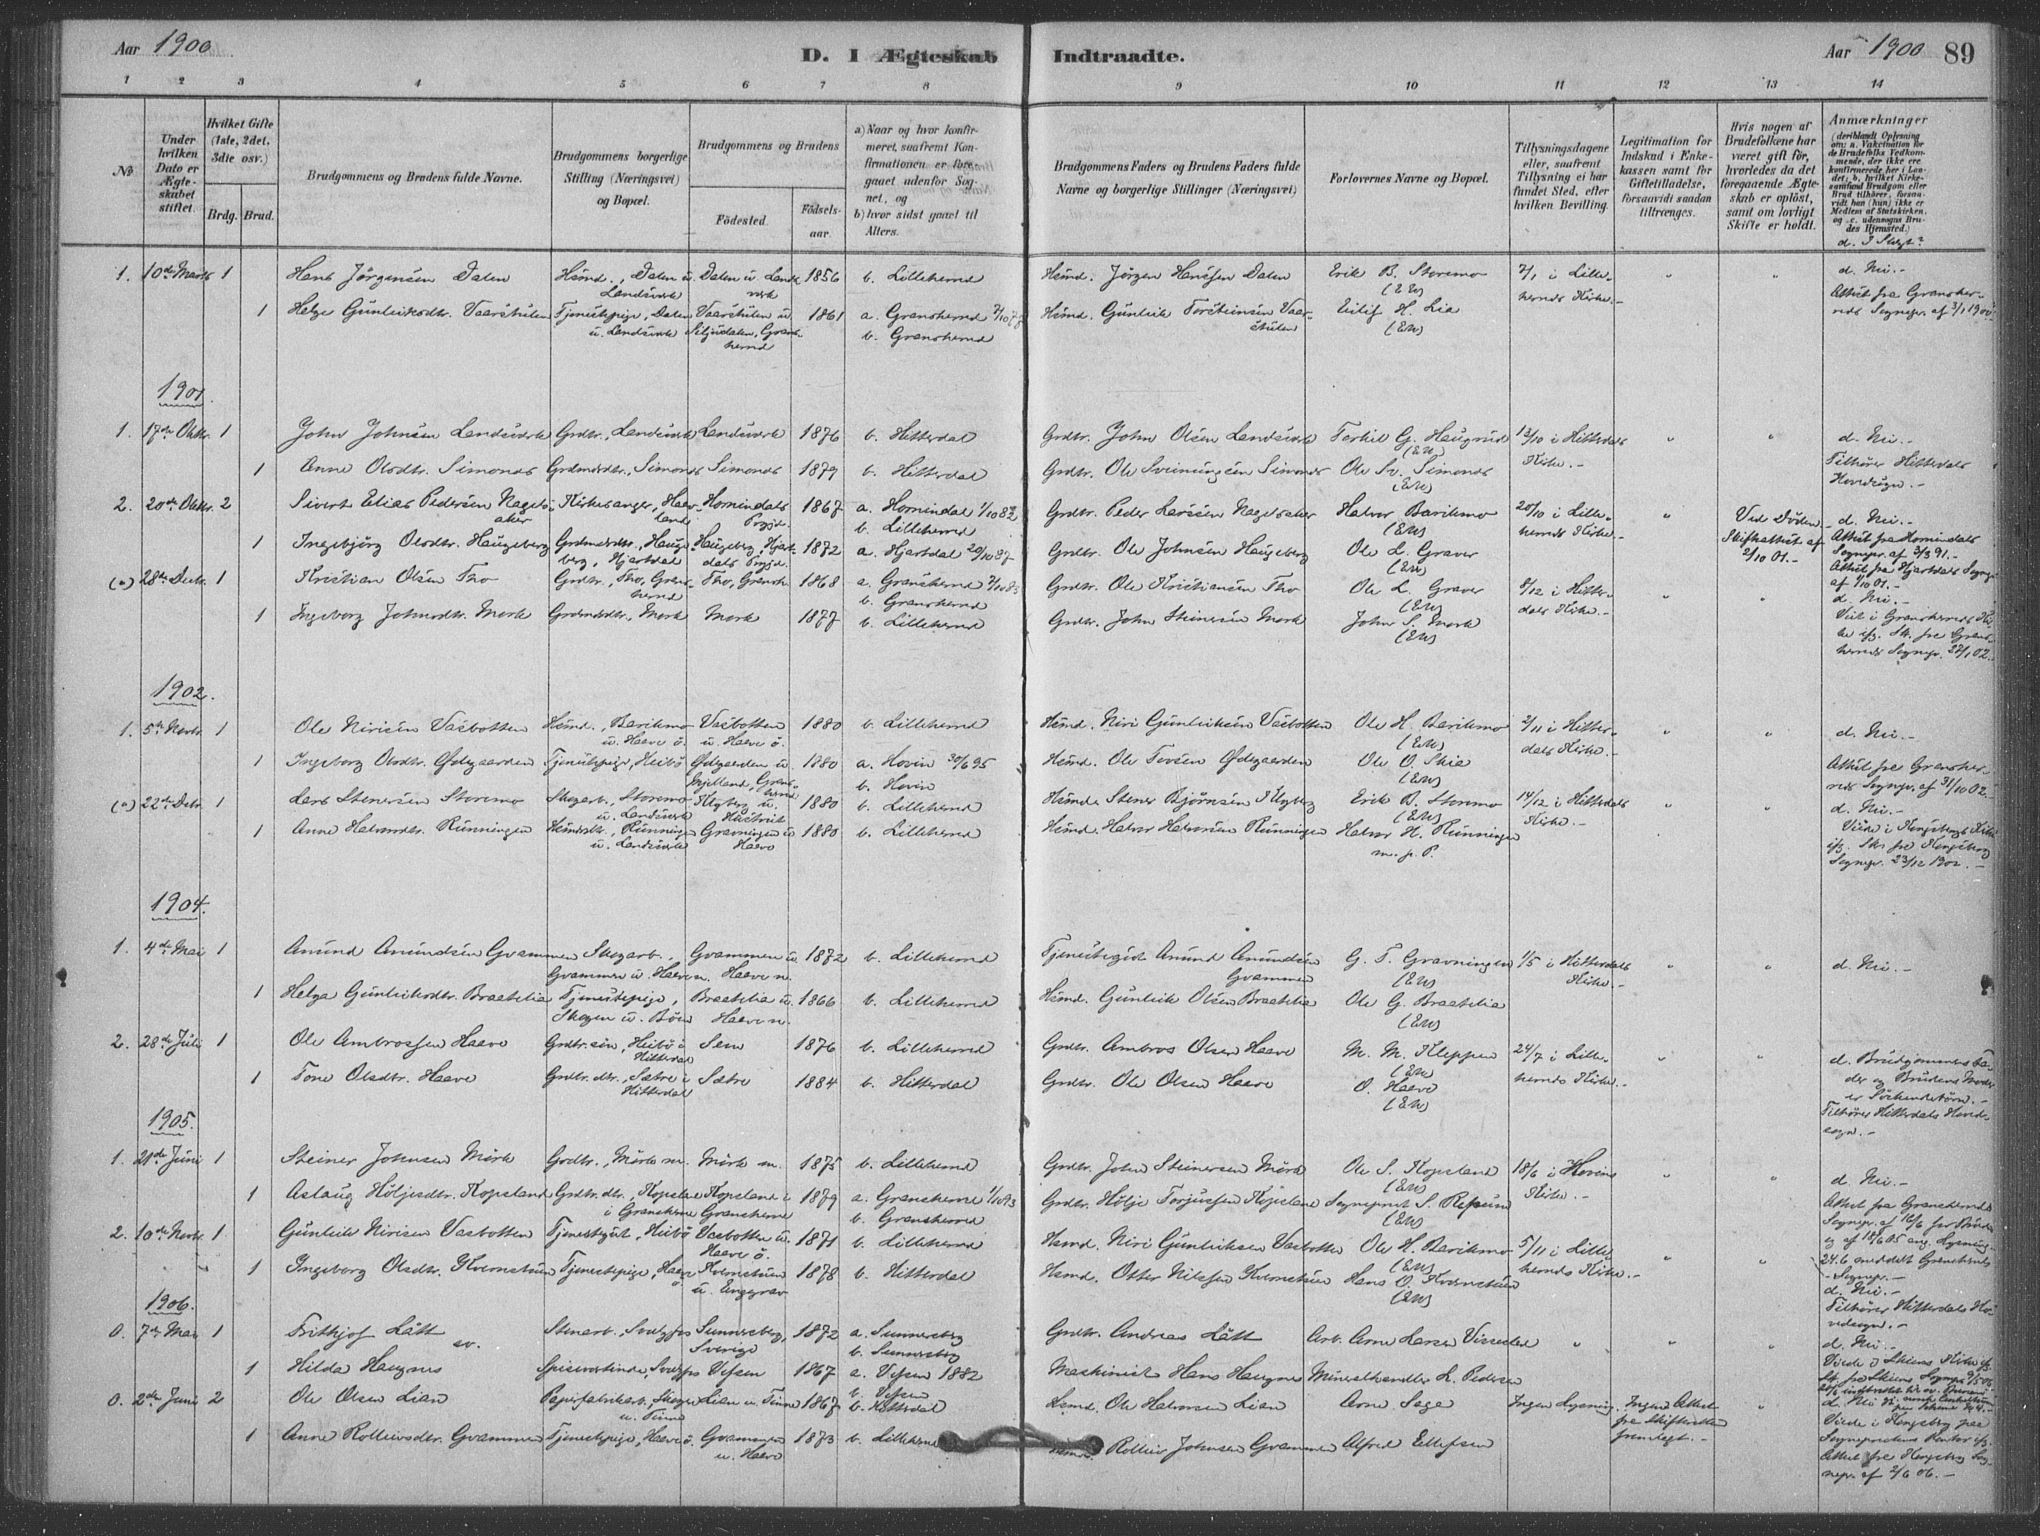 Aar 1900
D. I Ægteskab Indtraadte.
Aar 1900 89
1 2 3 4 5 6 7 8 9 10 11 12 13 14
No
Under hvilken Dato er Ægteskabet stiftet.
Hvilket Gifte (1ste, 2det, 3die osv.)
Brdg. Brud.
Brudgommens og Brudens fulde Navne.
Brudgommens borgerlige Stilling (Næringsvei) og Bopæl.
Brudgommens og Brudens
Födested.
Födselsaar.
a) Naar og hvor konfirmeret, saafremt Konfirmationen er foregaaet udenfor Sognet, og
b) hvor sidst gaaet til Alters.
Brudgommens Faders og Brudens Faders fulde Navne og borgerlige Stillinger (Næringsvei)
Forlovernes Navne og Bopæl.
Tillysningsdagene eller, saafremt Tillysning ei har fundet Sted, efter hvilken Bevilling.
Legitimation for Indskud i Enkekassen samt for Giftetilladelse, forsaavidt saadan tiltrænges.
Hvis nogen af Brudefolkene har været gift för, hvorledes da det foregaaende Ægteskab er oplöst, samt om lovligt Skifte er holdt.
Anmærkninger (deriblandt Oplysning om: a. Vaksination for de Brudefolks Vedkommende, der ikke ere konfirmerede her i Landet; b. hvilket Kirkesamfund Brudgom eller Brud tilhörer, forsaavidt han (hun) ikke er Medlem af Statskirken, og c. udensogns Brudes Hjemsted.)
1. 10de Marts 1 Hans Jørgensen Dalen Husmd., Dalen u. Landsverk Dalen u. Landsverk 1856 b. Lilleherred Husmd. Jørgen Hanssen Dalen Erik B. Storemo (EW) 7/1 i Lilleherreds Kirke.- " " d. Nei.-
1 Helge Gunleiksdtr. Vaarstulen Tjenestepige, Dalen u. Landsverk Vaarstulen u. Siljudalen, Gransherred 1861 a. Gransherred b. Gransherred Husmd. Gunleik Torsteinsen Vaarstulen Eilif H. Lia (EW) Attest fra Gransherreds Sognepr. af 3/1 1900.
1901.
1. 17de Oktbr. 1 John Johnsen Landsverk Grdbr., Landsverk Landsverk 1876 b. Hitterdal Grdbr. John Olsen Landsverk Terkil G. Haugrud (EW) 13/10 i Hitterdals Kirke.- " " d. Nei.-
1 Anne Olsdtr. Simonds Grdmdsdtr., Simonds Simonds 1879 b. Hitterdal Grdbr. Ole Sveinungsen Simonds Ole Sv. Simonds (EW) Tilhører Hitterdals Hovedsogn.-
2. 20de Oktbr. 2 Sivert Elias Pedersen Nagelsaker Kirkesanger, Haaveland Hornindals Prgjd. 1867 a. Hornindal 1/10 82 b. Lilleherred Grdbr. Peder Larssen Nagelsaker Halvor Barikmo (EW) 20/10 i Lilleherreds Kirke.- " Ved Døden.- Skifteattest af 2/10 01.- d. Nei.- Attest fra Hornindals Sognepr. af 3/3 91.-
1 Ingebjörg Olsdtr. Haugeberg Grdmdsdtr., Haugeberg, Hjartdal Haugeberg, Hjartdals Prgjd. 1872 a. Hjartdal 20/10 87 Grdbr. Ole Johnsen Haugeberg Ole L. Graver (EW) Attest fra Hjartdals Sognepr. af 1/10 01.-
(a) 28de Decbr. 1 Kristian Olsen Tho Grdbr., Tho, Gransherred Tho, Gransh. 1868 a. Gransherred b. Gransherred Grdbr. Ole Kristiansen Tho Ole L. Graver (EW) 8/12 i Hitterdals Kirke.- " " d. Nei.-
1 Ingeborg Johnsdtr. Mørk Grdmdsdtr., Mørk Mørk 1877 b. Lilleherred Grdbr. John Steinersen Mørk John S. Mørk (EW) Viet i Gransherreds Kirke ifg. Sk. fra Gransherreds Sognepr. 27/1 02.-
1902.
1. 5te Novbr. 1 Ole Nirisen Vasbotten Husmd., Barikmo u. Haave ö. Vasbotten u. Haave ö. 1880 b. Lilleherred Husmd. Niri Gunleiksen Vasbotten Ole H. Barikmo (EW) 2/11 i Hitterdals Kirke.- " " d. Nei.-
1 Ingeborg Olsdtr. Ødegaarden Tjenestepige, Heibö Ødegaarden u. Gransherred 1880 a. Hovin 30/6 95 b. Hovin Husmd. Ole Tovsen Ødegaarden Ole O. Skie (EW) Attest fra Gransherreds Sognepr. af 31/10 02.-
(a) 22de Decbr. 1 Lars Stenersen Storemo Skogarb., Storemo u. Landsverk Klyberg u. 1880 b. Lilleherred Husmd. Stener Bjørnsen Klyberg Erik B. Storemo (EW) 14/12 i Hitterdals Kirke.- " " d. Nei.-
1 Anne Halvorsdtr. Rünningen Husmdsdtr., Rünningen u. Landsverk Gravningen u. Haave 1880 b. Lilleherred Husmd. Halvor Halvorsen Rünningen Halvor H. Rünningen m. p. P. Viede i Kongsbergs Kirke ifg. Skr. fra Kongsberg Sognepr. 23/12 1902.-
1904.
1. 4de Mai 1 Amund Amundsen Gvammen Skogarb., Gvammen u. Haave n. Gvammen u. Haave n. 1872 b. Lilleherred Tjenestegut Amund Amundsen Gvammen G. T. Gravningen (EW) 1/5 i Hitterdals Kirke.- " " d. Nei.-
1 Helga Gunleiksdtr. Braatelia Tjenestepige, Skogen u. Böen Braatelia u. Haave n. 1866 b. Lilleherred Husmd. Gunleik Olsen Braatelia Ole G. Braatelia (EW)
2. 28de Juli 1 Ole Ambrossen Haave Grdbr.sön, Heibö i Hitterdal Sem 1876 b. Lilleherred Grdbr. Ambros Olsen Haave M. M. Kleppen (EW) 24/7 i Lilleherreds Kirke.- " " d. Brudgommens Fader og Brudens Moder er Söskendebörn.-
1 Tone Olsdtr. Haave Grdbr.dtr., Sætre i Hitterdal Sætre 1884 b. Hitterdal Grdbr. Ole Olsen Haave O. Haave (EW) Tilhører Hitterdals Hovedsogn.-
1905.
1. 21de Juni 1 Steiner Johnsen Mörk Grdbr., Mörk m. Mörk m. 1875 b. Lilleherred Grdbr. John Steinersen Mörk Ole S. Kopsland (EW) 18/6 i Hovins Kirke.- " " d. Nei.-
1 Aslaug Höljesdtr. Kopsland Grdbr.dtr., Kopsland i Gransherred Kopsland i Gransherred 1879 a. Gransherred 1/10 93 b. Gransherred Grdbr. Hölje Torjussen Kopsland Sogneprest S. Repsum (EW) Attest fra Gransherreds Sognepr. af
2. 10de Novbr. 1 Gunleik Nirisen Vasbotten Tjenestegut, Heibö Vasbotten u. Haave ö. 1871 b. Lilleherred Husmd. Niri Gunleiksen Vasbotten Ole H. Barikmo (EW) 5/11 i Lilleherreds Kirke.- " " d. Nei.-
1 Ingeborg Olsdtr. Kvernstuen Tjenestepige, Haave ö. Kvernstuen u. Anggrav 1878 b. Hitterdal Husmd. Otter Nilssen Kvernstuen Hans O. Kvernstuen (EW) Tilhører Hitterdals Hovedsogn.-
1906.
0. 7de Mai 1 Fritjof Lätt sv. Stenarb., Svælgfos Sunnersberg, Sverige 1872 a. Sunnersberg b. Sunnersberg Grdbr. Andreas Lätt Arb. Arne Larsen " " d. Nei.-
1 Hilda Haugnes Svælgfos Vefsen 1867 a. Vefsen 1882 b. Vefsen Maskinist Hans Haugnes Mineralhandler L. Pedersen Viede i Skiens Kirke ifg.
0. 2den Juni 2 Ole Olsen Lian Papirfabrikarb., Skogen u. Tinne Lian u. Tinne 1867 b. Hitterdal Husmd. Ole Halvorsen Lian Arne Sage Ingen Lysning. Ingen Attest fra Skifteretten fremlagt.- "
1 Anne Rolleivsdtr. Gvammen Tjenestepige, Haave ö. Gvammen u. Haave 1873 b. Lilleherred Husmd. Rolleiv Johnsen Gvammen Alfred Ellefsen Viede i Kongsberg paa Sogneprestens Kontor ifg. Attest fra Kongsberg Sognepr. af 2/6 06.-